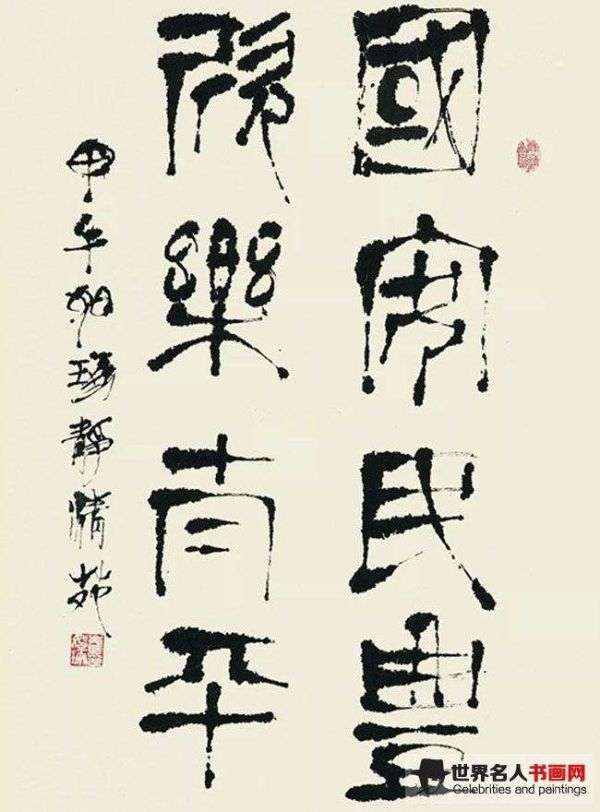 國安民豐
欣樂平
甲午靜清苑
世界名人书画网
Celebrities and paintings